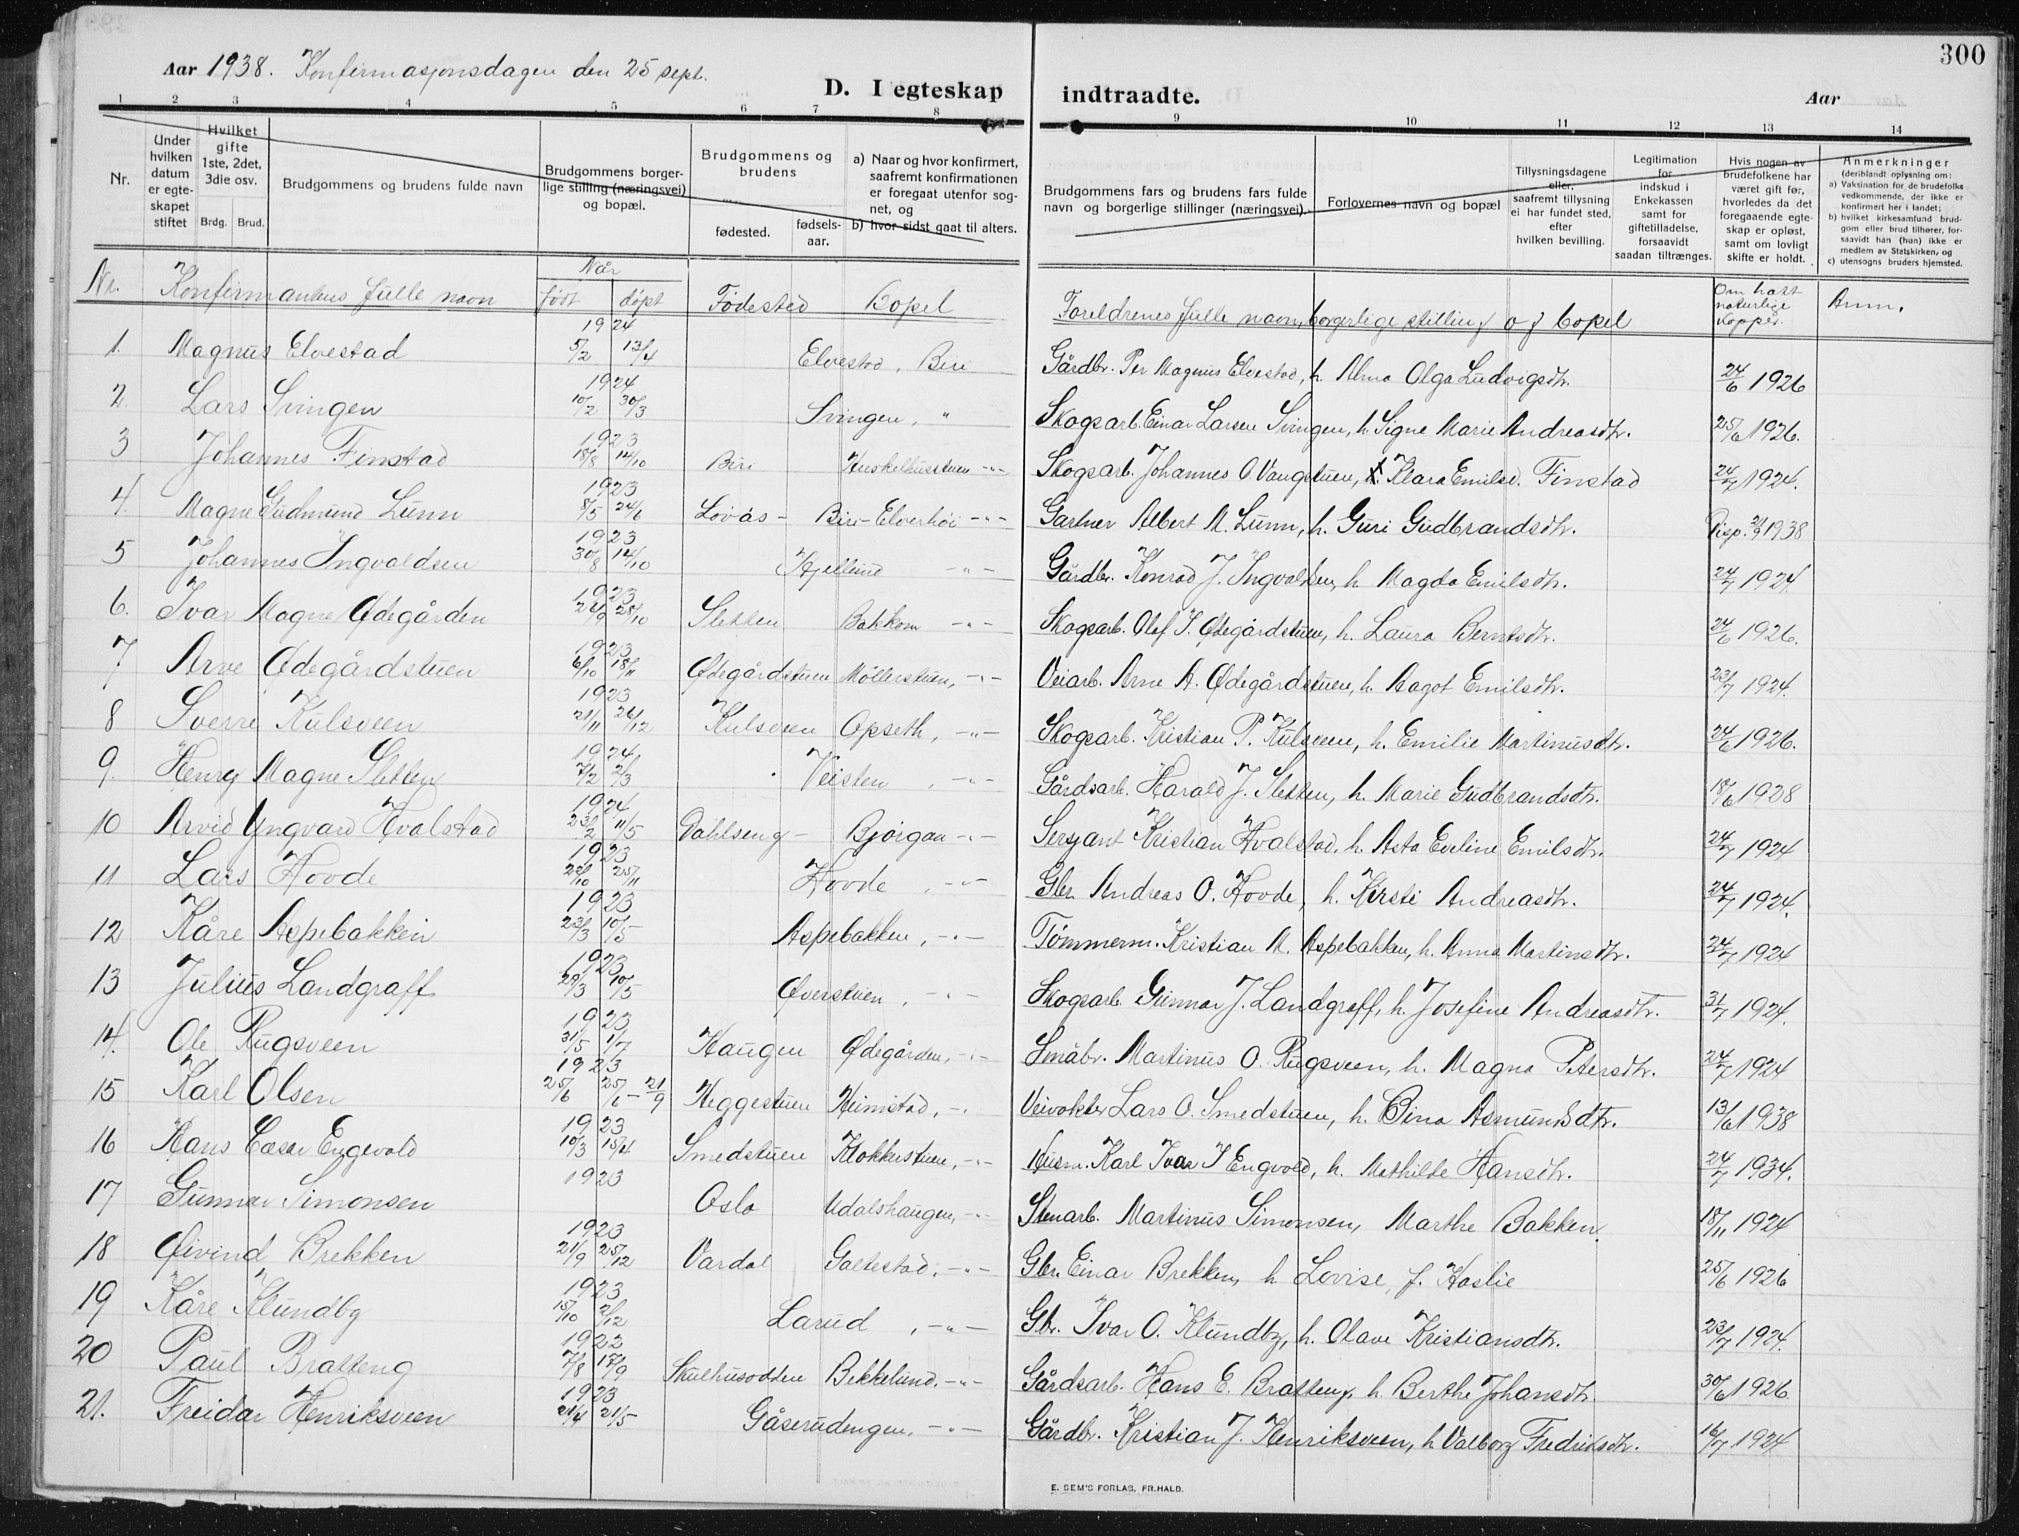 300
Aar 1938. Konfirmasjonsdagen den 25 sept.
D. I egteskap indtraadte.
Aar
1 2 3 4 5 6 7 8 9 10 11 12 13 14
Nr.
Under hvilken datum er egteskapet stiftet
Hvilket gifte 1ste, 2det, 3die osv.
Brdg. Brud.
Brudgommens og brudens fulde navn
Brudgommens borgerlige stilling (næringsvei) og bopæl.
Brudgommens og brudens
fødested.
fødselsaar.
a) Naar og hvor konfirmert, saafremt konfirmationen er foregaat utenfor sognet, og
b) hvor sidst gaat til alters.
Brudgommens fars og brudens fars fulde navn og borgerlige stillinger (næringsvei).
Forlovernes navn og bopæl
Tillysningsdagene eller, saafremt tillysning ei har fundet sted, efter hvilken bevilling.
Legitimation for indskud i Enkekassen samt for giftetilladelse, forsaavidt saadan tiltrænges.
Hvis nogen av brudefolkene har været gift før, hvorledes da det foregaaende egteskap er opløst, samt om lovligt skifte er holdt.
Anmerkninger (deriblandt oplysning om:
a) Vaksination for de brudefolks vedkommende, der ikke er konfirmert her i landet;
b) hvilket kirkesamfund brudgom eller brud tilhører, forsaavidt han (hun) ikke er medlem av Statskirken, og
c) utensogns bruders hjemsted.
Nr. Konfirmantens fulle navn Når født døpt Fødested Bopel Foreldrenes fulle navn, borgerlige stilling og bopel Om hatt naturlige kopper. Anm.
1. Magnus Elvestad 1924 5/2 13/4 Elvestad, Biri Gårdbr. Per Magnus Elvestad, h. Alma Olga Ludvigsdtr. 24/6 1926
2. Lars Svingen 1924 10/2 30/3 Svingen, " Skogsarb. Einar Larsen Svingen, h. Signe Marie Andreasdtr. 25/6 1926.
3 Johannes Finstad 1923 18/8 14/10 Biri -"- Skogsarb. Johannes O. Vangstuen, Klara Emilsd. Finstad 24/7 1924.
4. Magne Gudmund Lunn 1923 8/5 24/6 Lovås - Biri - Elverhöi -"- Gartner Albert M. Lunn, h. Guri Gudbrandsdtr. 1938
5 Johannes Ingvaldsen 1923 30/8 14/10 Hjellund -"- Gårdbr. Konrad J. Ingvaldsen, h. Magda Emilsdtr. 24/7 1924
6. Ivar Magne Ødegården 1923 28/10 Sletten Bakkom -"- Skogsarb. Olaf I. Ødegårdstuen, h. Laura Berntsdtr. 24/6 1926.
7 Arve Ødegårdstuen 1923 6/10 18/11 Ødegårdstuen Möllerstuen, -"- Veiarb. Arne A. Ødegårdstuen, h. Aagot Emilsdtr. 23/7 1924.
8 Sverre Kulsveen 1923 21/11 26/12 Kulsveen Opseth, -"- Skogsarb. Kristian P. Kulsveen, h. Emilie Martinusdtr. 24/6 1926.
9. Henry Magne Sletten 1924 7/2 2/3 Veisten, -"- Gårdsarb. Harald J. Sletten, h. Marie Gudbrandsdtr. 18/6 1928
10 Arvid Yngvard Hvalstad 1924 23/2 11/5 Dahlseng - Bjørgan -"- Sersjant Kristian Hvalstad, h. Asta Eveline Emilsdtr. 24/7 1924
11 Lars Hovde 1923 25/11 Hovde, -"- Gbr. Andreas O. Hovde, h. Kirsti Andreasdtr. 24/7 1924.
12 Kåre Aspebakken 1923 23/3 10/5 Aspebakken, -"- Tömmerm. Kristian M. Aspebakken, h. Anna Martinsdtr. 24/7 1924
13 Julius Landgraff 1923 29/3 10/5 Øverstuen, -"- Skogsarb. Gunnar J. Landgraff, h. Josefine Andreasdtr. 31/7 1924.
14. Ole Rugsveen 1923 31/5 1/7 Haugen Ødegården, -"- Småbr. Martinus O. Rugsveen, h. Magna Petersdtr. 24/7 1924
15 Karl Olsen 1923 25/6 25/6 - 21/9 Heggestuen Heimstad, -"- Veivokter Lars O. Smedstuen, h. Asmundsdtr. 13/6 1938
16 Hans Cæsar Engevold 1923 10/3 15/4 Smedstuen Klokkerstuen, -"- Karl Ivar I Engvold, h. Mathilde Hansdtr. 24/7 1934.
17 Gunnar Simonsen 1923 Oslo Udalshaugen, -"- Stenarb. Martinus Simonsen, Marthe Bakken. 18/11 1924
18 Øivind Brekken 1923 21/9 25/12 Vardal -"- Gbr. Einar Brekken, h Lovise, f. Haslie 25/6 1926
19 Kåre Klundby 1923 15/10 2/12 Larud, -"- Gbr. Ivar O. Klundby, h. Olave Kristiansdtr. 23/7 1924.
20 Paul Bratteng 1922 7/8 17/9 Skulhusodden Bekkelund, -"- Gårdsarb. Hans E. Bratteng, h Berthe Johansdtr. 30/6 1926.
21. Freidar Henriksveen 1923 21/4 21/5 Gåserudengen, -"- Gårdbr. Kristian J. Henriksveen, h Valborg Fredriksdtr. 16/7 1924
E. SEM'S FORLAG, FR.HALD.